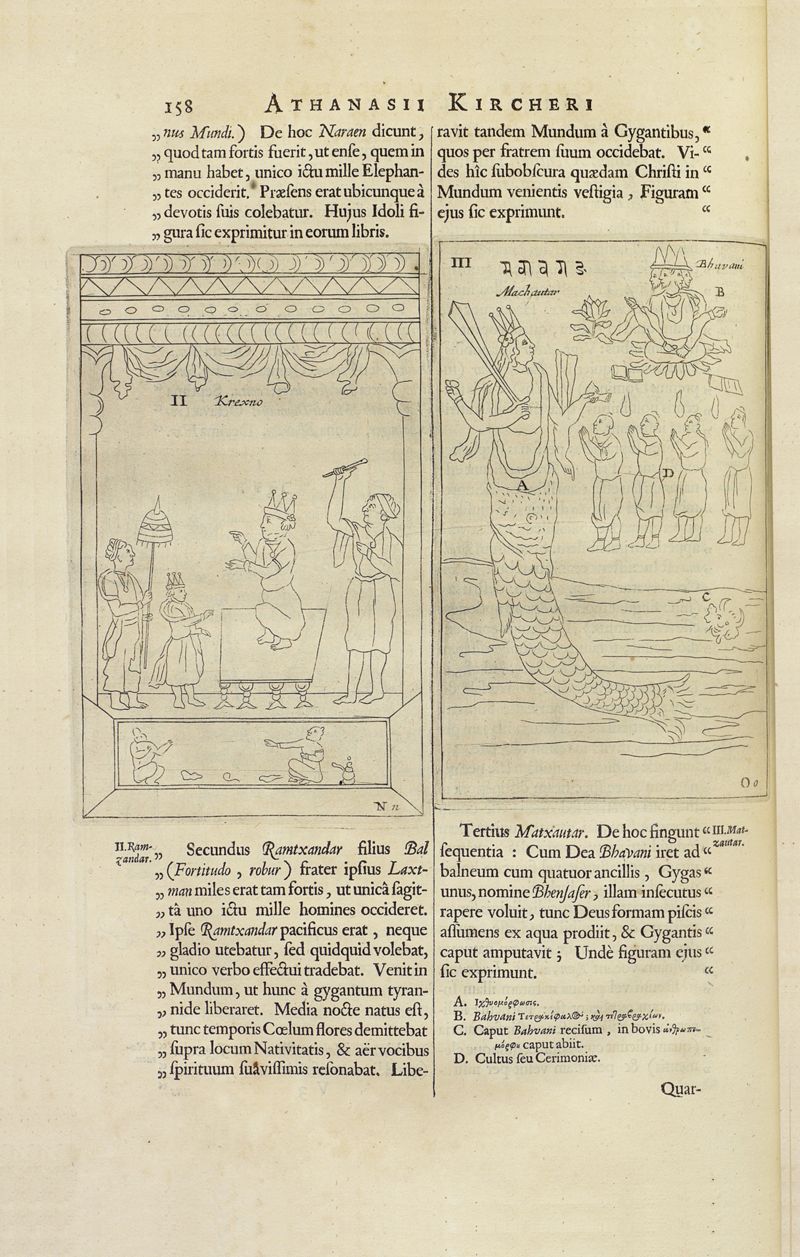 158 ATHANASII KIRCHERI
„ nus Mundi.) De hoc Naraen dicunt,
„ quod tam fortis fuerit, ut enſe, quem in
„ manu habet, unico ictu mille Elephan-
„ tes occiderit. Præſens erat ubicunque à
„ devotis ſuis colebatur. Hujus Idoli fi-
„ gura ſic exprimitur in eorum libris.
II Krexno
N n
II. Ram-
xandar.
„ Secundus Ramtxandar filius Bal
„ (Fortitudo , robur) frater ipſius Laxt-
„ man miles erat tam fortis, ut unicâ ſagit-
„ tâ uno ictu mille homines occideret.
„ Ipſe Ramtxandar pacificus erat, neque
„ gladio utebatur, ſed quidquid volebat,
„ unico verbo effectui tradebat. Venit in
„ Mundum, ut hunc à gygantum tyran-
„ nide liberaret. Media nocte natus eſt,
„ tunc temporis Cœlum flores demittebat
„ ſupra locum Nativitatis, & aër vocibus
„ ſpirituum ſuàviſſimis reſonabat. Libe-
ravit tandem Mundum à Gygantibus, “
quos per fratrem ſuum occidebat. Vi- “
des hîc ſubobſcura quædam Chriſti in “
Mundum venientis veſtigia, Figuram “
ejus ſic exprimunt. “
III
Machautar
Bhavani
B
A
D
C
O o
Tertius Matxautar. De hoc fingunt “
III. Mat-
xautar.
ſequentia : Cum Dea Bhavani iret ad “
balneum cum quatuor ancillis, Gygas “
unus, nomine Bhenjaſer, illam inſecutus “
rapere voluit, tunc Deus formam piſcis “
aſſumens ex aqua prodiit, & Gygantis “
caput amputavit; Undè figuram ejus “
ſic exprimunt. “
A. Ἰχθυομόρφωσις.
B. Bahvani
C. Caput Bahvani reciſum , in bovis
caput abiit.
D. Cultus ſeu Cerimoniæ.
Quar-